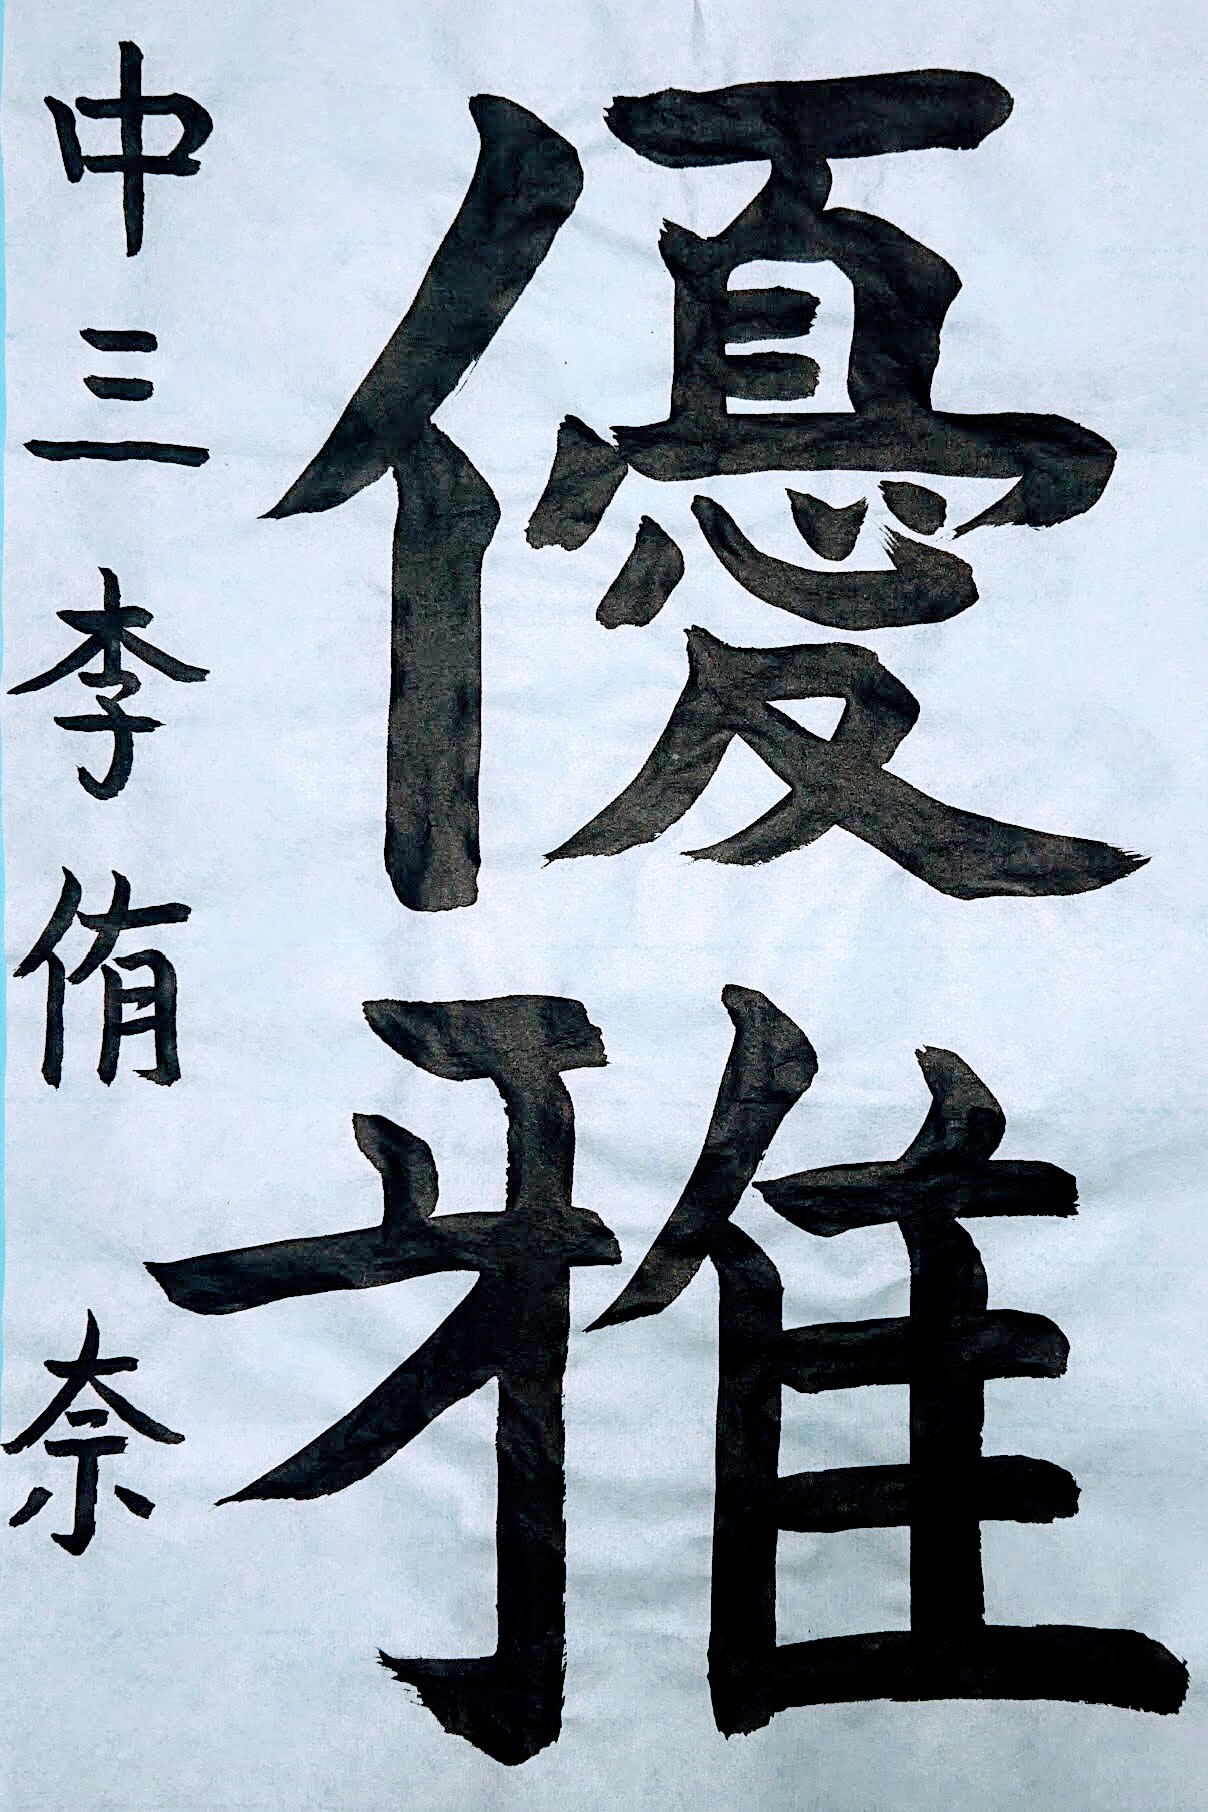 優雅
中三 李侑奈